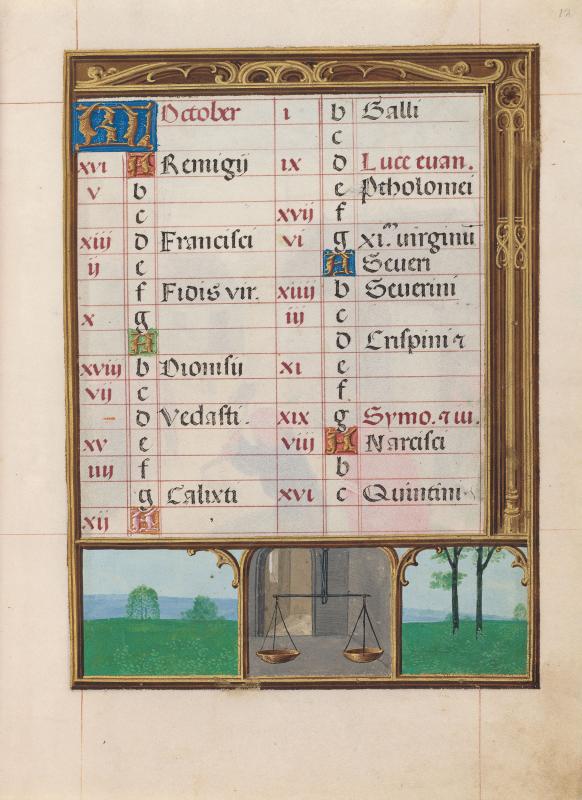 12
KL October
xvi A Remigij
v b
c
xiij d Francisci
ij e
f Fidis vir.
x g
A
xviij b Dionisij
vij c
d Vedasti.
xv e
iiij f
g Calixti
xij A
i b Galli
c
ix d Luce euan.
e Ptholomei
xvij f
vi g xi.ᵐ uirginū
A Seueri
xiiij b Seuerini
iij c
d Crispini ⁊
xi e
f
xix g Symo. ⁊ iu.
viij A Narcisci
b
xvi c Quintini